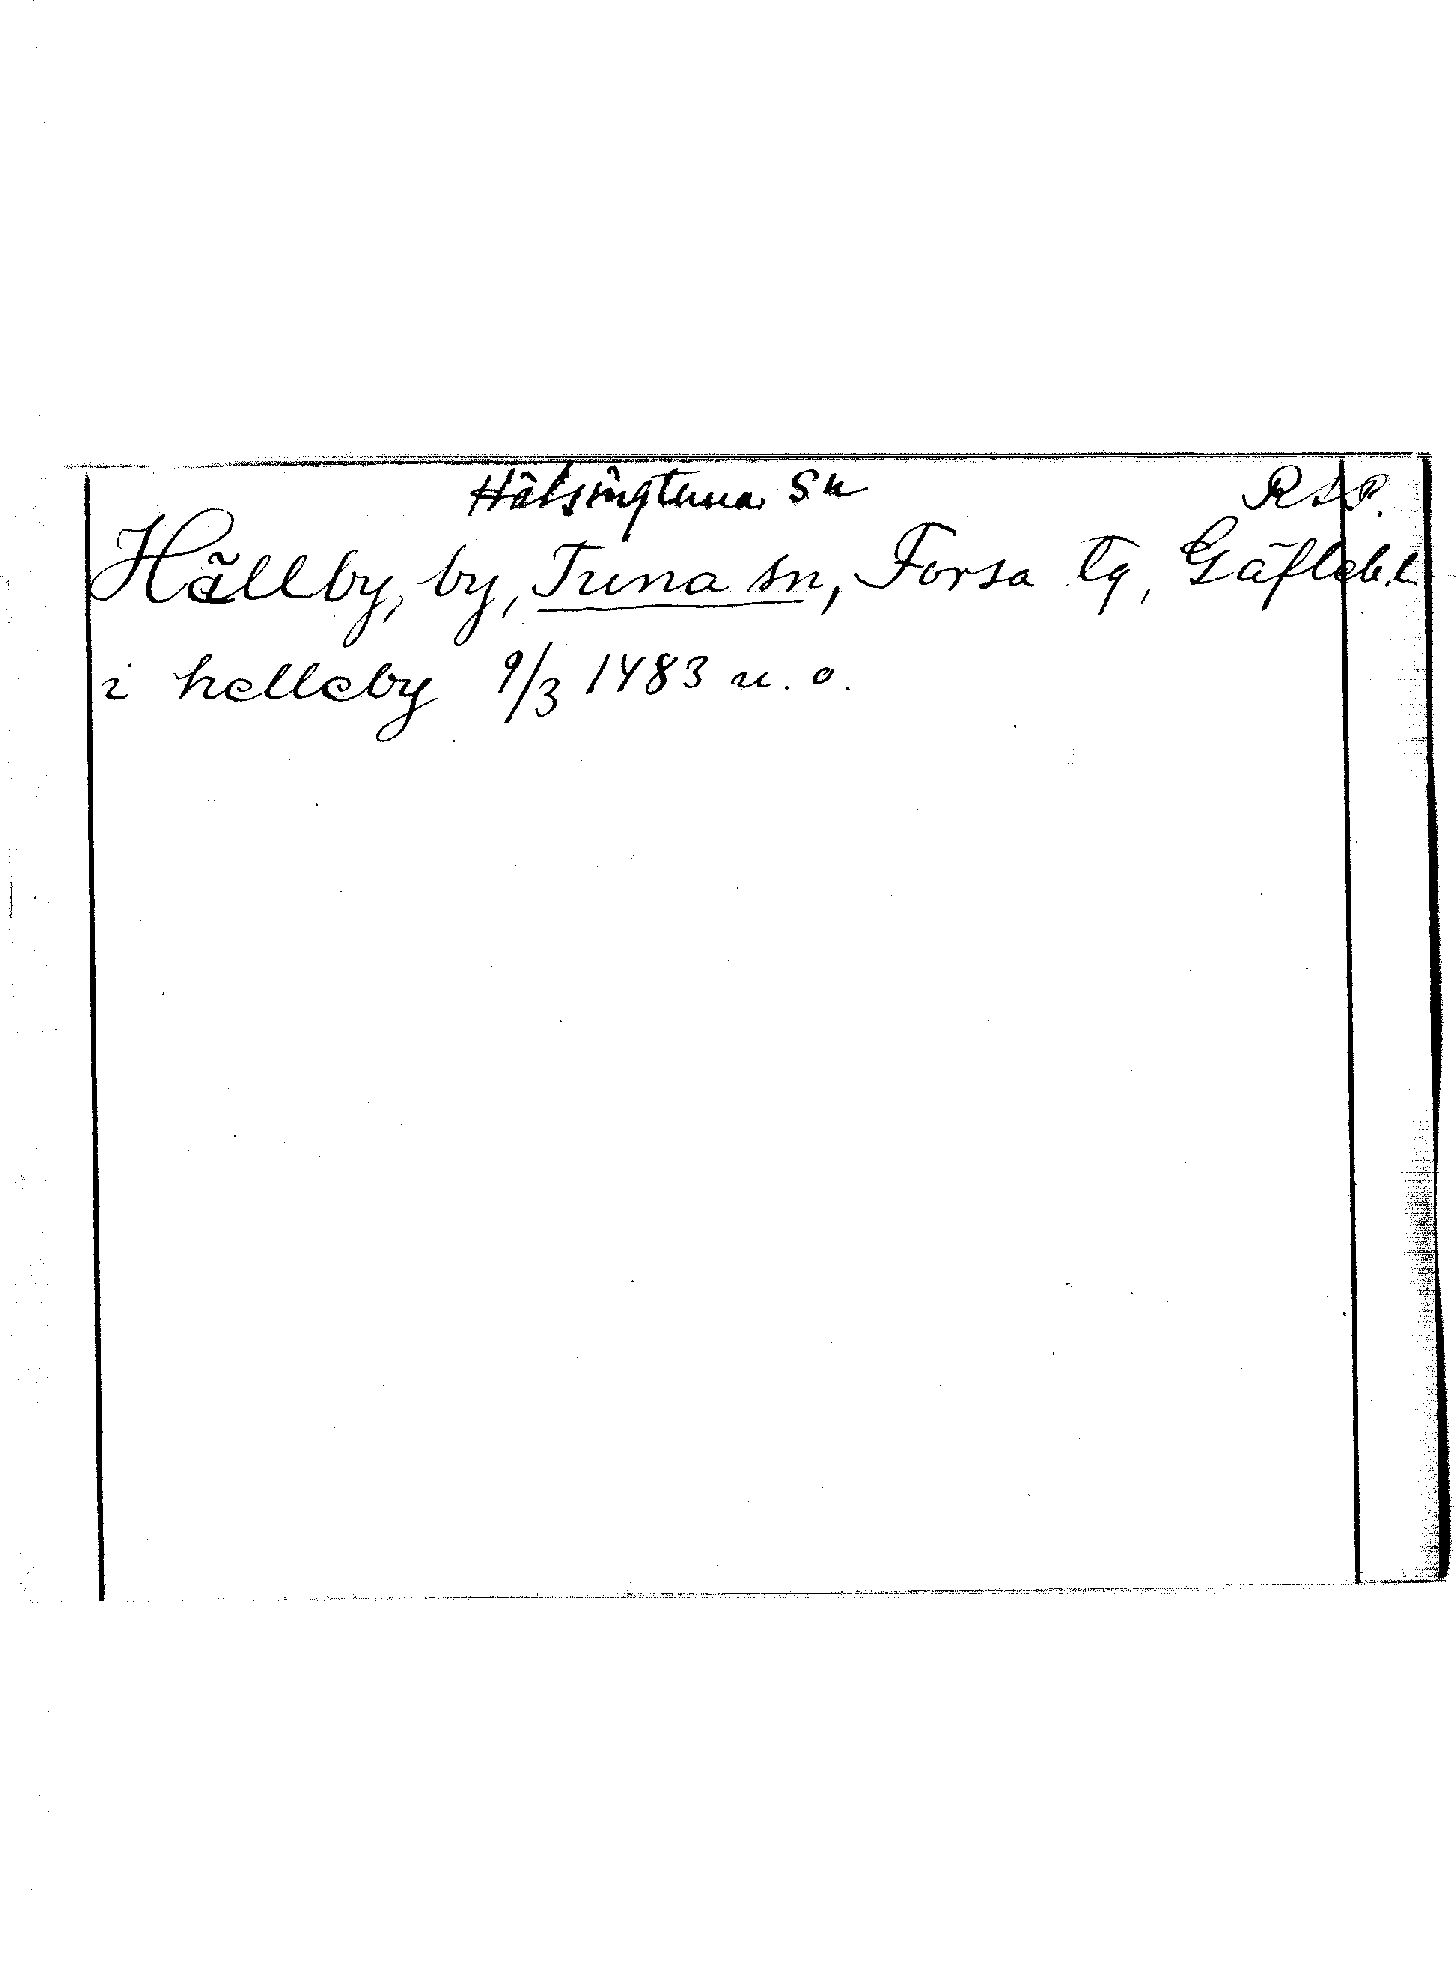 Hälsingtuna Sn RAP.
Hällby, by, Tuna sn, Forsa tg, Gäfleb.l.
i helleby 9/3 1483 u. o.